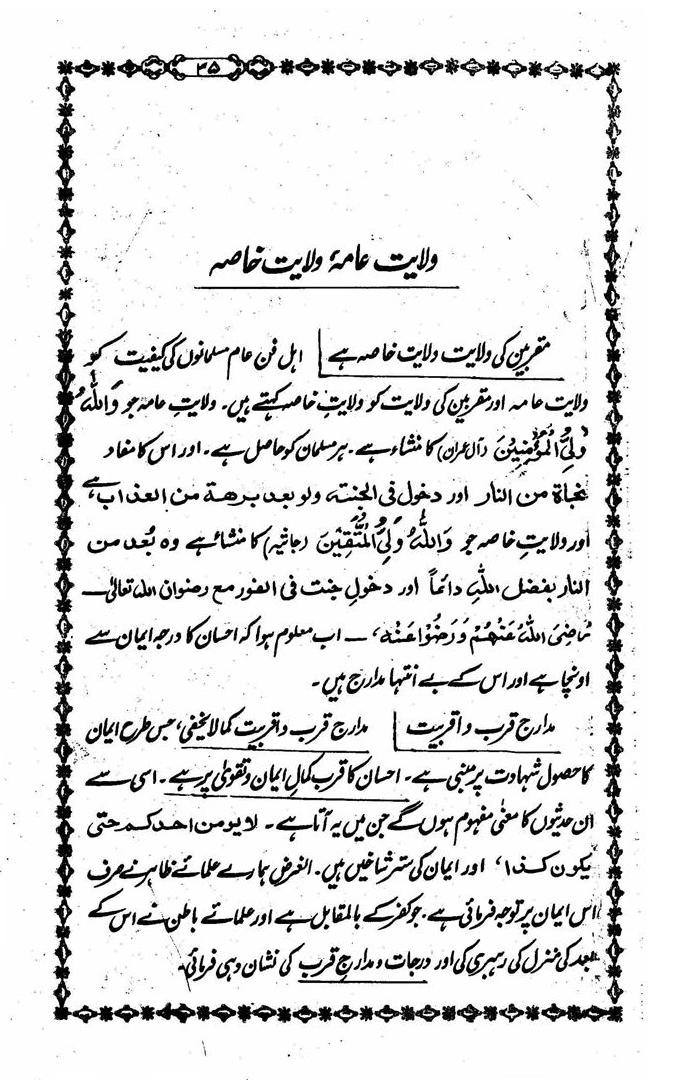 ۳۵
ولایت عامہ ولایت خاصہ
مقربین کی ولایت ولایت خاصہ ہے اہل فن عام مسلمانوں کی کیفیت کو
ولایت عامہ اور مقربین کی ولایت کو ولایتِ خاصہ کہتے ہیں۔ ولایتِ عامہ جو وَاللّٰہُ
وَلِیُّ الْمُؤْمِنِیْنَ (آل عمران) کا منشاء ہے۔ ہر مسلمان کو حاصل ہے۔ اور اس کا مفاد
نجاة من النار اور دخول فی الجنتہ ولو بعد برھة من العذاب ہے
اور ولایتِ خاصہ جو وَاللّٰہُ وَلِیُّ الْمُتَّقِیْنَ (جاثیہ) کا منشاء ہے وہ بُعد من
النار بفضل اللّٰہِ دائماً اور دخولِ جنت فی الفور مع رضوان اللہ تعالیٰ۔
رَاضِیَ اللّٰہُ عَنْھُمْ وَرَضُوْا عَنْہ، ۔ اب معلوم ہوا کہ احسان کا درجہ ایمان سے
اونچا ہے اور اس کے بے انتہا مدارج ہیں۔
مدارج قرب و اقربیت مدارج قرب و اقربیت کمالایخفی، جس طرح ایمان
کا حصول شہادت پر مبنی ہے۔ احسان کا قرب کمالِ ایمان و تقویٰ پر ہے۔ اسی سے
ان حدیثوں کا معنٰی مفہوم ہوں گے جن میں یہ آتا ہے۔ لا یومن احد کم حتی
یکون کذا، اور ایمان کی ستر شاخیں ہیں۔ الغرض ہمارے علمائے ظاہر نے صرف
اس ایمان پر توجہ فرمائی ہے۔ جو کفر کے بالمقابل ہے اور علمائے باطن نے اس کے
بعد کی منزل کی رہبری کی اور درجات و مدارجِ قرب کی نشان دہی فرمائی۔